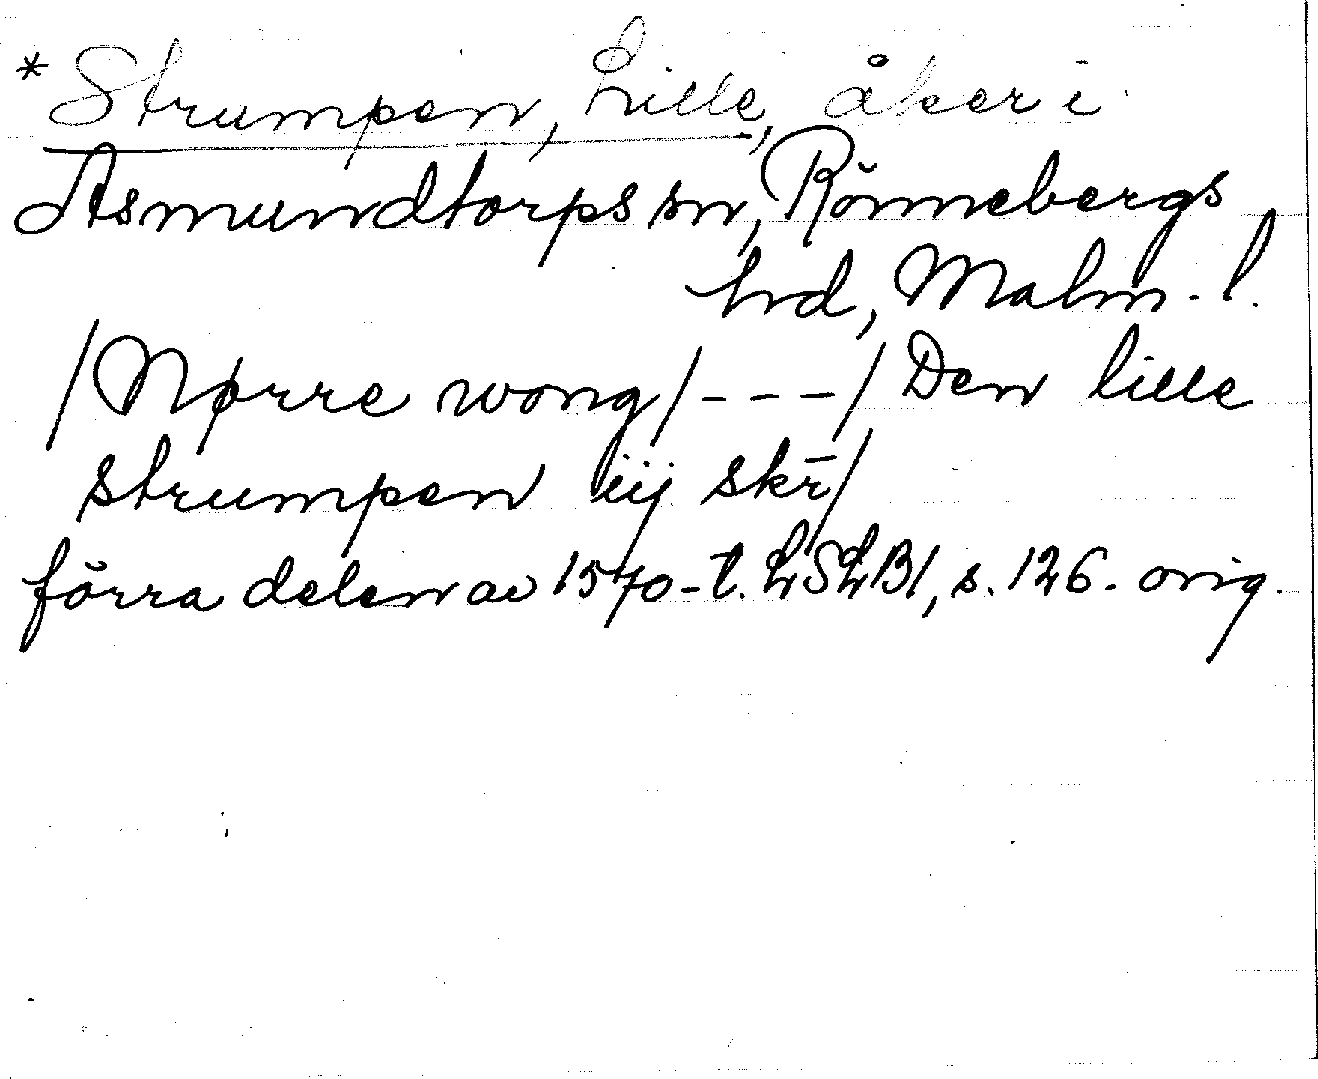 * Strumpen, Lille, åker i
Asmundtorps sn, Rönnebergs
hrd, Malm. l.
/Nørre wong/ - - - / Den lille
strumpen iij skr̄/
förra delen av 1570-t. LSLB1, s. 126. orig.